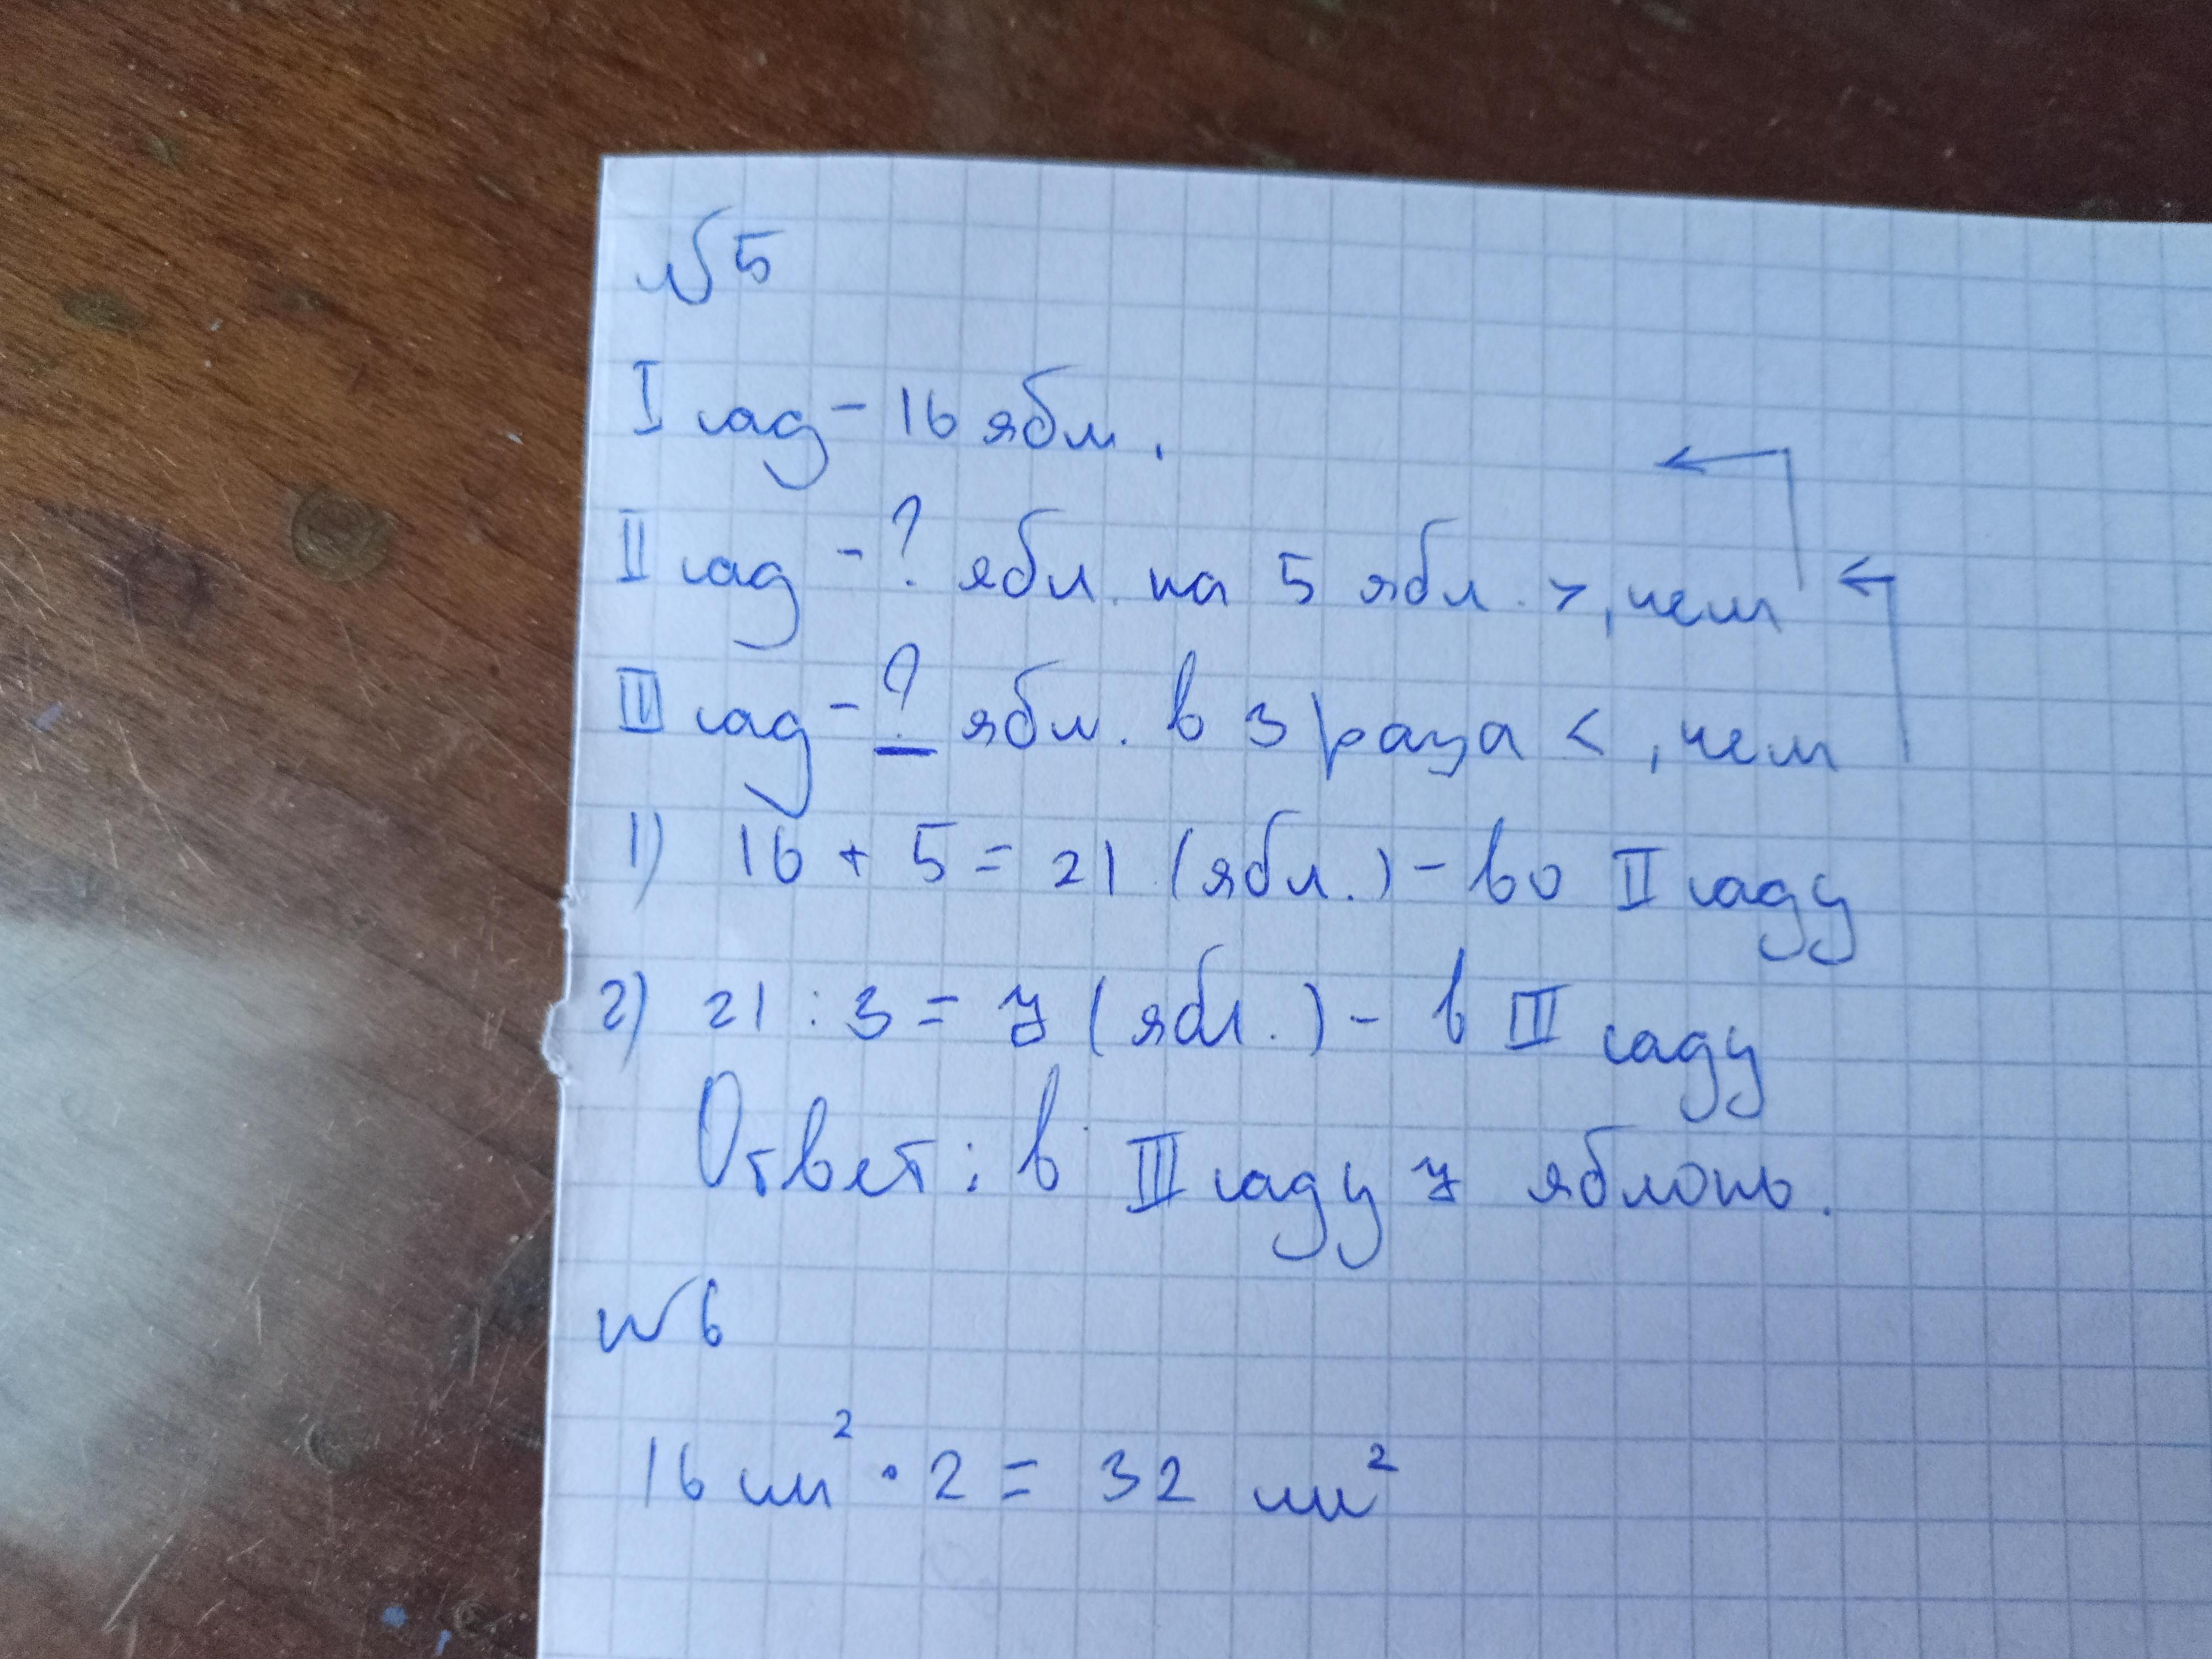 №5
I сад - 16 ябл.
II сад - ? ябл. на 5 ябл. >, чем
III сад - ? ябл. в 3 раза <, чем
1) 16 + 5 = 21 (ябл.) - во II саду
2) 21 : 3 = 7 (ябл.) - в III саду
Ответ: в III саду 7 яблонь.
№6
16 см² · 2 = 32 см²